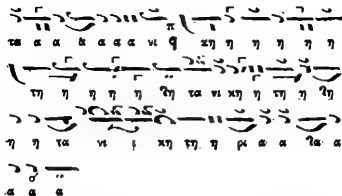 τα α α α α α α νι ϥ χη η η η η η
τη η η η η λη τα νι χη η τη η λη
η η τα νι ι χη τη η ρι α α λα α
α α α